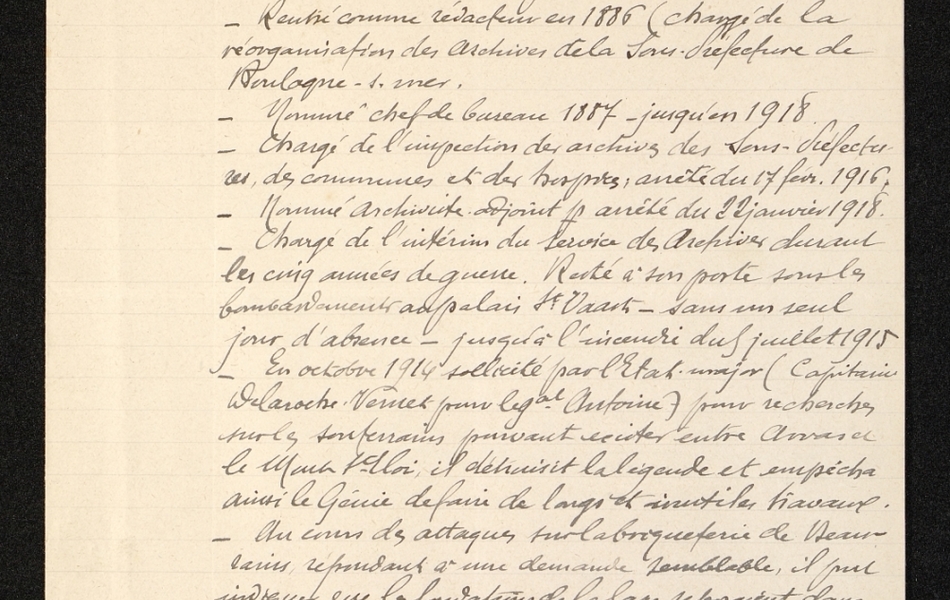 – Rentré comme rédacteur en 1886 (chargé de la
réorganisation des Archives de la Sous-Préfecture de
Boulogne-s.mer.
– Nommé chef de bureau 1887 – jusqu'en 1918
– Chargé de l'inspection des archives des Sous-Préfectu-
res, des communes et des hospices; arrêté du 17 févr. 1916.
– Nommé Archiviste-adjoint p arrêté du 22 janvier 1918.
– Chargé de l'intérim du Service des Archives durant
les cinq années de guerre. Resté à son poste sous les
bombardements au palais St Vaast – sans un seul
jour d'absence – jusqu'à l'incendie du 5 juillet 1915
– En octobre 1914 sollicité par l'Etat-major (Capitaine
Delaroche-Vernet pour le gal Antoine) pour recherches
sur les souterrains pouvant exister entre Arras et
le Mont St Eloi, il détruisit la légende et empêcha
ainsi le Génie de faire de longs et inutiles travaux.
– Au cours des attaques sur la briqueterie de Beau-
rains, répondant à une demande semblable, il put
indiquer que les de la